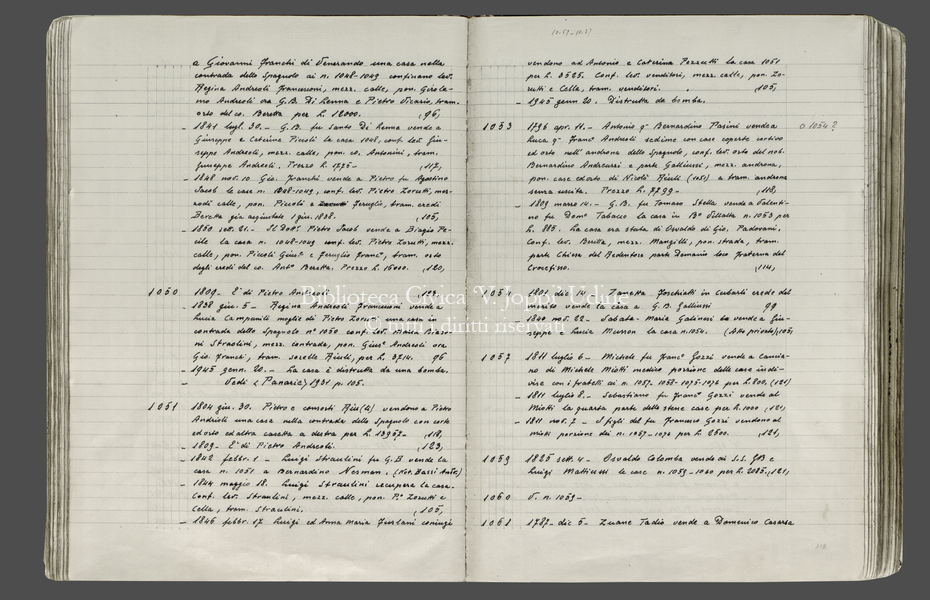 a Giovanni Franchi di Venerando una casa nella
contrada dello Spagnolo ai n. 1048-1049 confinano lev.
Regina Andreoli Franceroni, mezz. calle, pon. Girola-
mo Andreoli ora G.B. Di Lenna e Pietro Vicario, tram.
orto del co. Beretta per L. 12000. (96)
- 1841 lugl. 30. - G.B. fu Santo Di Lenna vende a
Giuseppe e Caterina Piccoli la casa 1048, conf. lev. Giu-
seppe Andreoli, mezz. calle, pon. co. Antonini, tram.
Giuseppe Andreoli. Prezzo L. 1775 - (117)
- 1848 nov. 10. Gio. Franchi vende a Pietro fu Agostino
Jacob le case n. 1048-1049, conf. lev. Pietro Zorutti, mez-
zodì calle, pon. Piccoli e Feruglio, tram. eredi
Beretta già acquistate 1 giu. 1838. (105)
- 1850 sett. 21. - Il Dott. Pietro Jacob vende a Biagio Pe-
cile la casa n. 1048-1049 conf. lev. Pietro Zorutti, mezz.
calle, pon. Piccoli Gius. e Feruglio Franc., tram. orto
degli eredi del co. Ant. Beretta. Prezzo L. 15000. (120)
1050 1809. È di Pietro Andreoli. 123
- 1838 giu. 5 - Regina Andreoli Franceroni vende a
Lucia Campunili moglie di Pietro Zorutti una casa in
contrada dello Spagnolo n° 1050 conf. lev. Maria Biaso-
ni Straolini, mezz. contrada, pon. Gius. Andreoli ora
Gio. Franchi, tram. sorelle Riuli, per L. 3714. 96
- 1945 genn. 20. - La casa è distrutta da una bomba.
- Vedi "Panarie" 1931 p. 105.
1051 1804 giu. 30. Pietro e consorti Riu(li) vendono a Pietro
Andrioli una casa nella contrada dello Spagnolo con corte
ed orto ed altra casetta a destra per L. 13957 - (118)
- 1809 - È di Pietro Andreoli. (123)
- 1842 febbr. 1 - Luigi Straulini fu G.B. vende la
casa n. 1051 a Bernardino Norman. (Not. Bassi Ant.)
- 1844 maggio 18. Luigi Straulini recupera la casa.
Conf. lev. Straulini, mezz. calle, pon. P. Zorutti e
Cella, tram. Straulini. (105)
- 1846 febbr. 17 Luigi ed Anna Maria Furlani coniugi
vendono ad Antonio e Caterina Pezzutti la casa 1051
per L. 3525. Conf. lev. venditori, mezz. calle, pon. Zo-
rutti e Cella, tram. venditori. (105)
- 1945 genn. 20. Distrutta da bomba.
1053 1796 apr. 11. - Antonio q. Bernardino Pasini vende a
Luca q. Franc. Andreoli sedime con case coperte cortivo
ed orto nell'androna dello Spagnolo, conf. lev. orto del nob.
Bernardino Andreuzzi e parte Galliussi, mezz. androna,
pon. case ed orto di Nicolò Riuli (1051) a tram. androna
senza uscita. Prezzo L. 7799 - (118)
o 1054?
- 1809 marzo 14. - G.B. fu Tomaso Stella vende a Valenti-
no fu Dom. Tabacco la casa in B. Villalta n. 1053 per
L. 885. La casa era stata di Osvaldo di Gio. Padovani.
Conf. lev. Beretta, mezz. Mangilli, pon. strada, tram.
parte Chiesa del Redentore parte Domanio loco fraterna del
Crocefisso. (114)
1054 1801 dic. 14. - Zanetta Foschiatti in Cubarli erede del
marito vende la casa a G.B. Galliussi 99
- 1840 nov. 22. - Sabata-Maria Galiussi vende a Giu-
seppe e Lucia Musson la casa n. 1054. (Atto privato) (105)
1057 1811 luglio 6 - Michele fu Franc. Gozzi vende a Camia-
no di Michele Miotti mediro porzione delle case indi-
vise con i fratelli ai n. 1057-1058-1075-1076 per L. 800. (121)
- 1811 luglio 8. - Sebastiano fu Franc. Gozzi vende al
Miotti la quarta parte delle stesse case per L. 1000 (121)
- 1811 nov. 7. - I figli del fu Francesco Gozzi vendono al
Miotti porzione dei n. 1057-1076 per L. 2500. (121)
1059 1825 sett. 4. - Osvaldo Colomba vende ai S.S. GB e
Luigi Mattiussi le case n. 1059-1060 per L. 2085. (121)
1060 V. n. 1059 -
1061 1787 - dic 5 - Zuane Tadio vende a Domenico Casarsa
Biblioteca Civica "V. Joppi" Udine
© tutti i diritti riservati